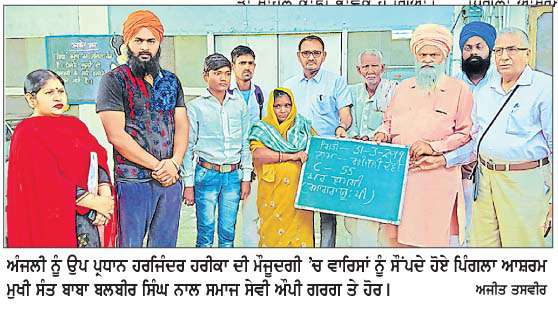 ਪਿੰਗਲਾ ਆਸ਼ਰਮ
31-3-
ਨਾਮ
C- 55
ਘਰ ਵਾਪਸੀ
(ਆਗਰਾ ਯੂ:ਪੀ)
ਅੰਜਲੀ ਨੂੰ ਉਪ ਪ੍ਰਧਾਨ ਹਰਜਿੰਦਰ ਹਰੀਕਾ ਦੀ ਮੌਜੂਦਗੀ 'ਚ ਵਾਰਿਸਾਂ ਨੂੰ ਸੌਂਪਦੇ ਹੋਏ ਪਿੰਗਲਾ ਆਸ਼ਰਮ
ਮੁਖੀ ਸੰਤ ਬਾਬਾ ਬਲਬੀਰ ਸਿੰਘ ਨਾਲ ਸਮਾਜ ਸੇਵੀ ਔਪੀ ਗਰਗ ਤੇ ਹੋਰ। ਅਜੀਤ ਤਸਵੀਰ